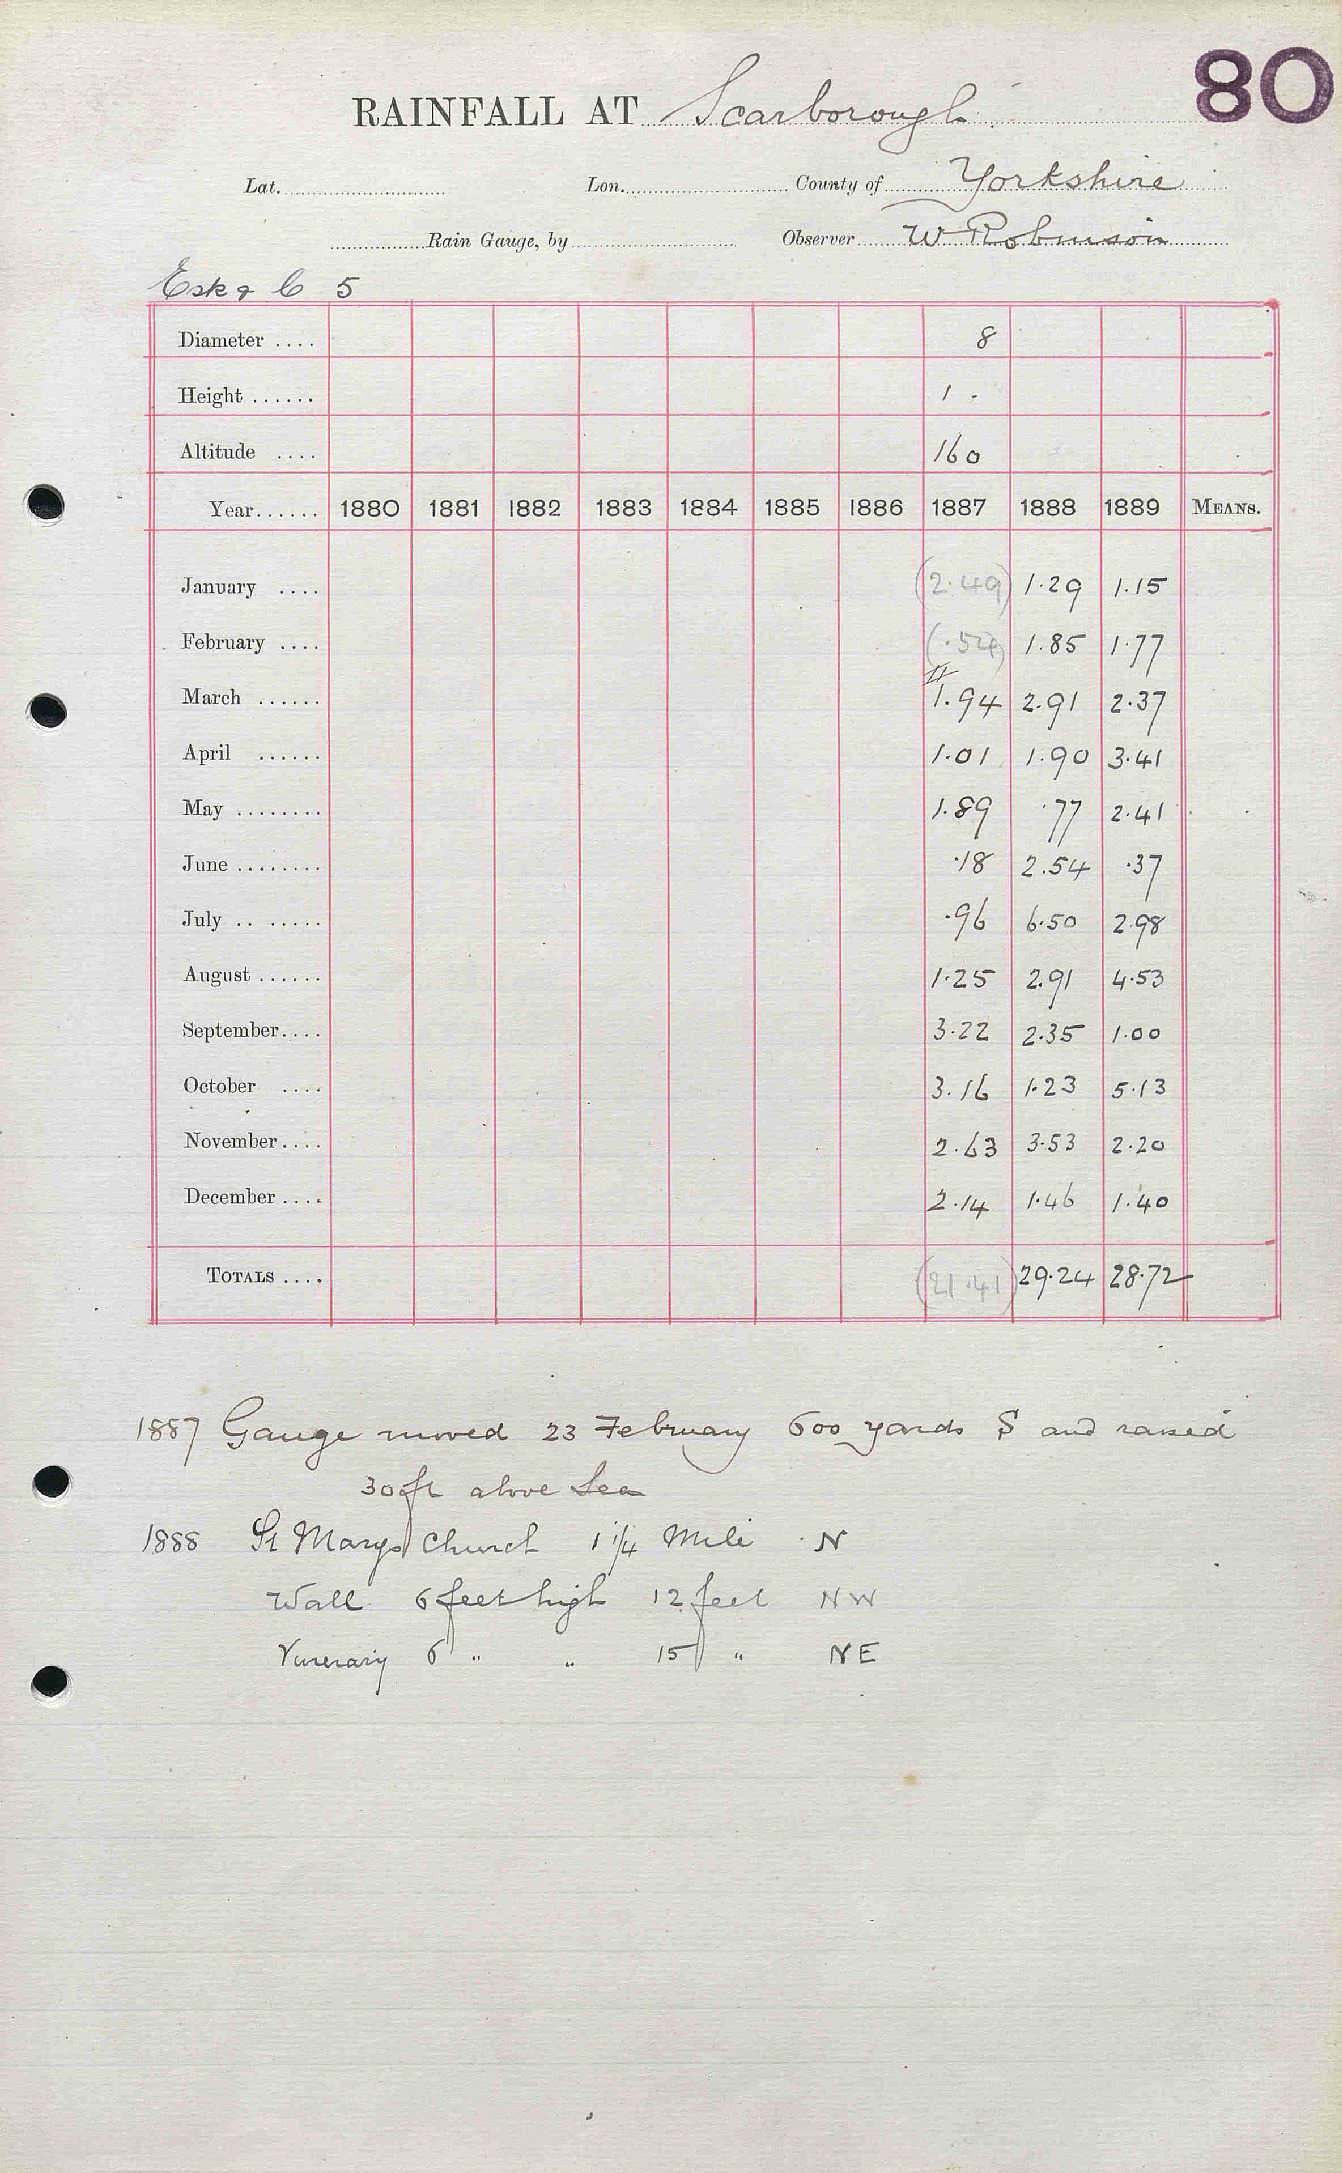 80
RAINFALL AT Scarborough
Lat. Lon. County of Yorkshire
Rain Gauge, by Observer W Robinson
Esk & C 5
Diameter .... 8
Height ...... 1 .
Altitude .... 160
Year...... 1880 1881 1882 1883 1884 1885 1886 1887 1888 1889 MEANS.
January .... (2.49) 1.29 1.15
February .... (.54) 1.85 1.77
March ...... 1.94 2.91 2.37
April ...... 1.01 1.90 3.41
May ........ 1.89 .77 2.41
June ........ .18 2.54 .37
July .. ..... .96 6.50 2.98
August ...... 1.25 2.91 4.53
September.... 3.22 2.35 1.00
October .... 3.16 1.23 5.13
November.... 2.63 3.53 2.20
December .... 2.14 1.46 1.40
TOTALS .... (21.41) 29.24 28.72
1887 Gauge moved 23 February 600 yards S and raised
30 ft above Sea
1888 St Marys Church 1 1/4 Mile N
Wall 6 feet high 12 feet NW
6 " " 15 " NE